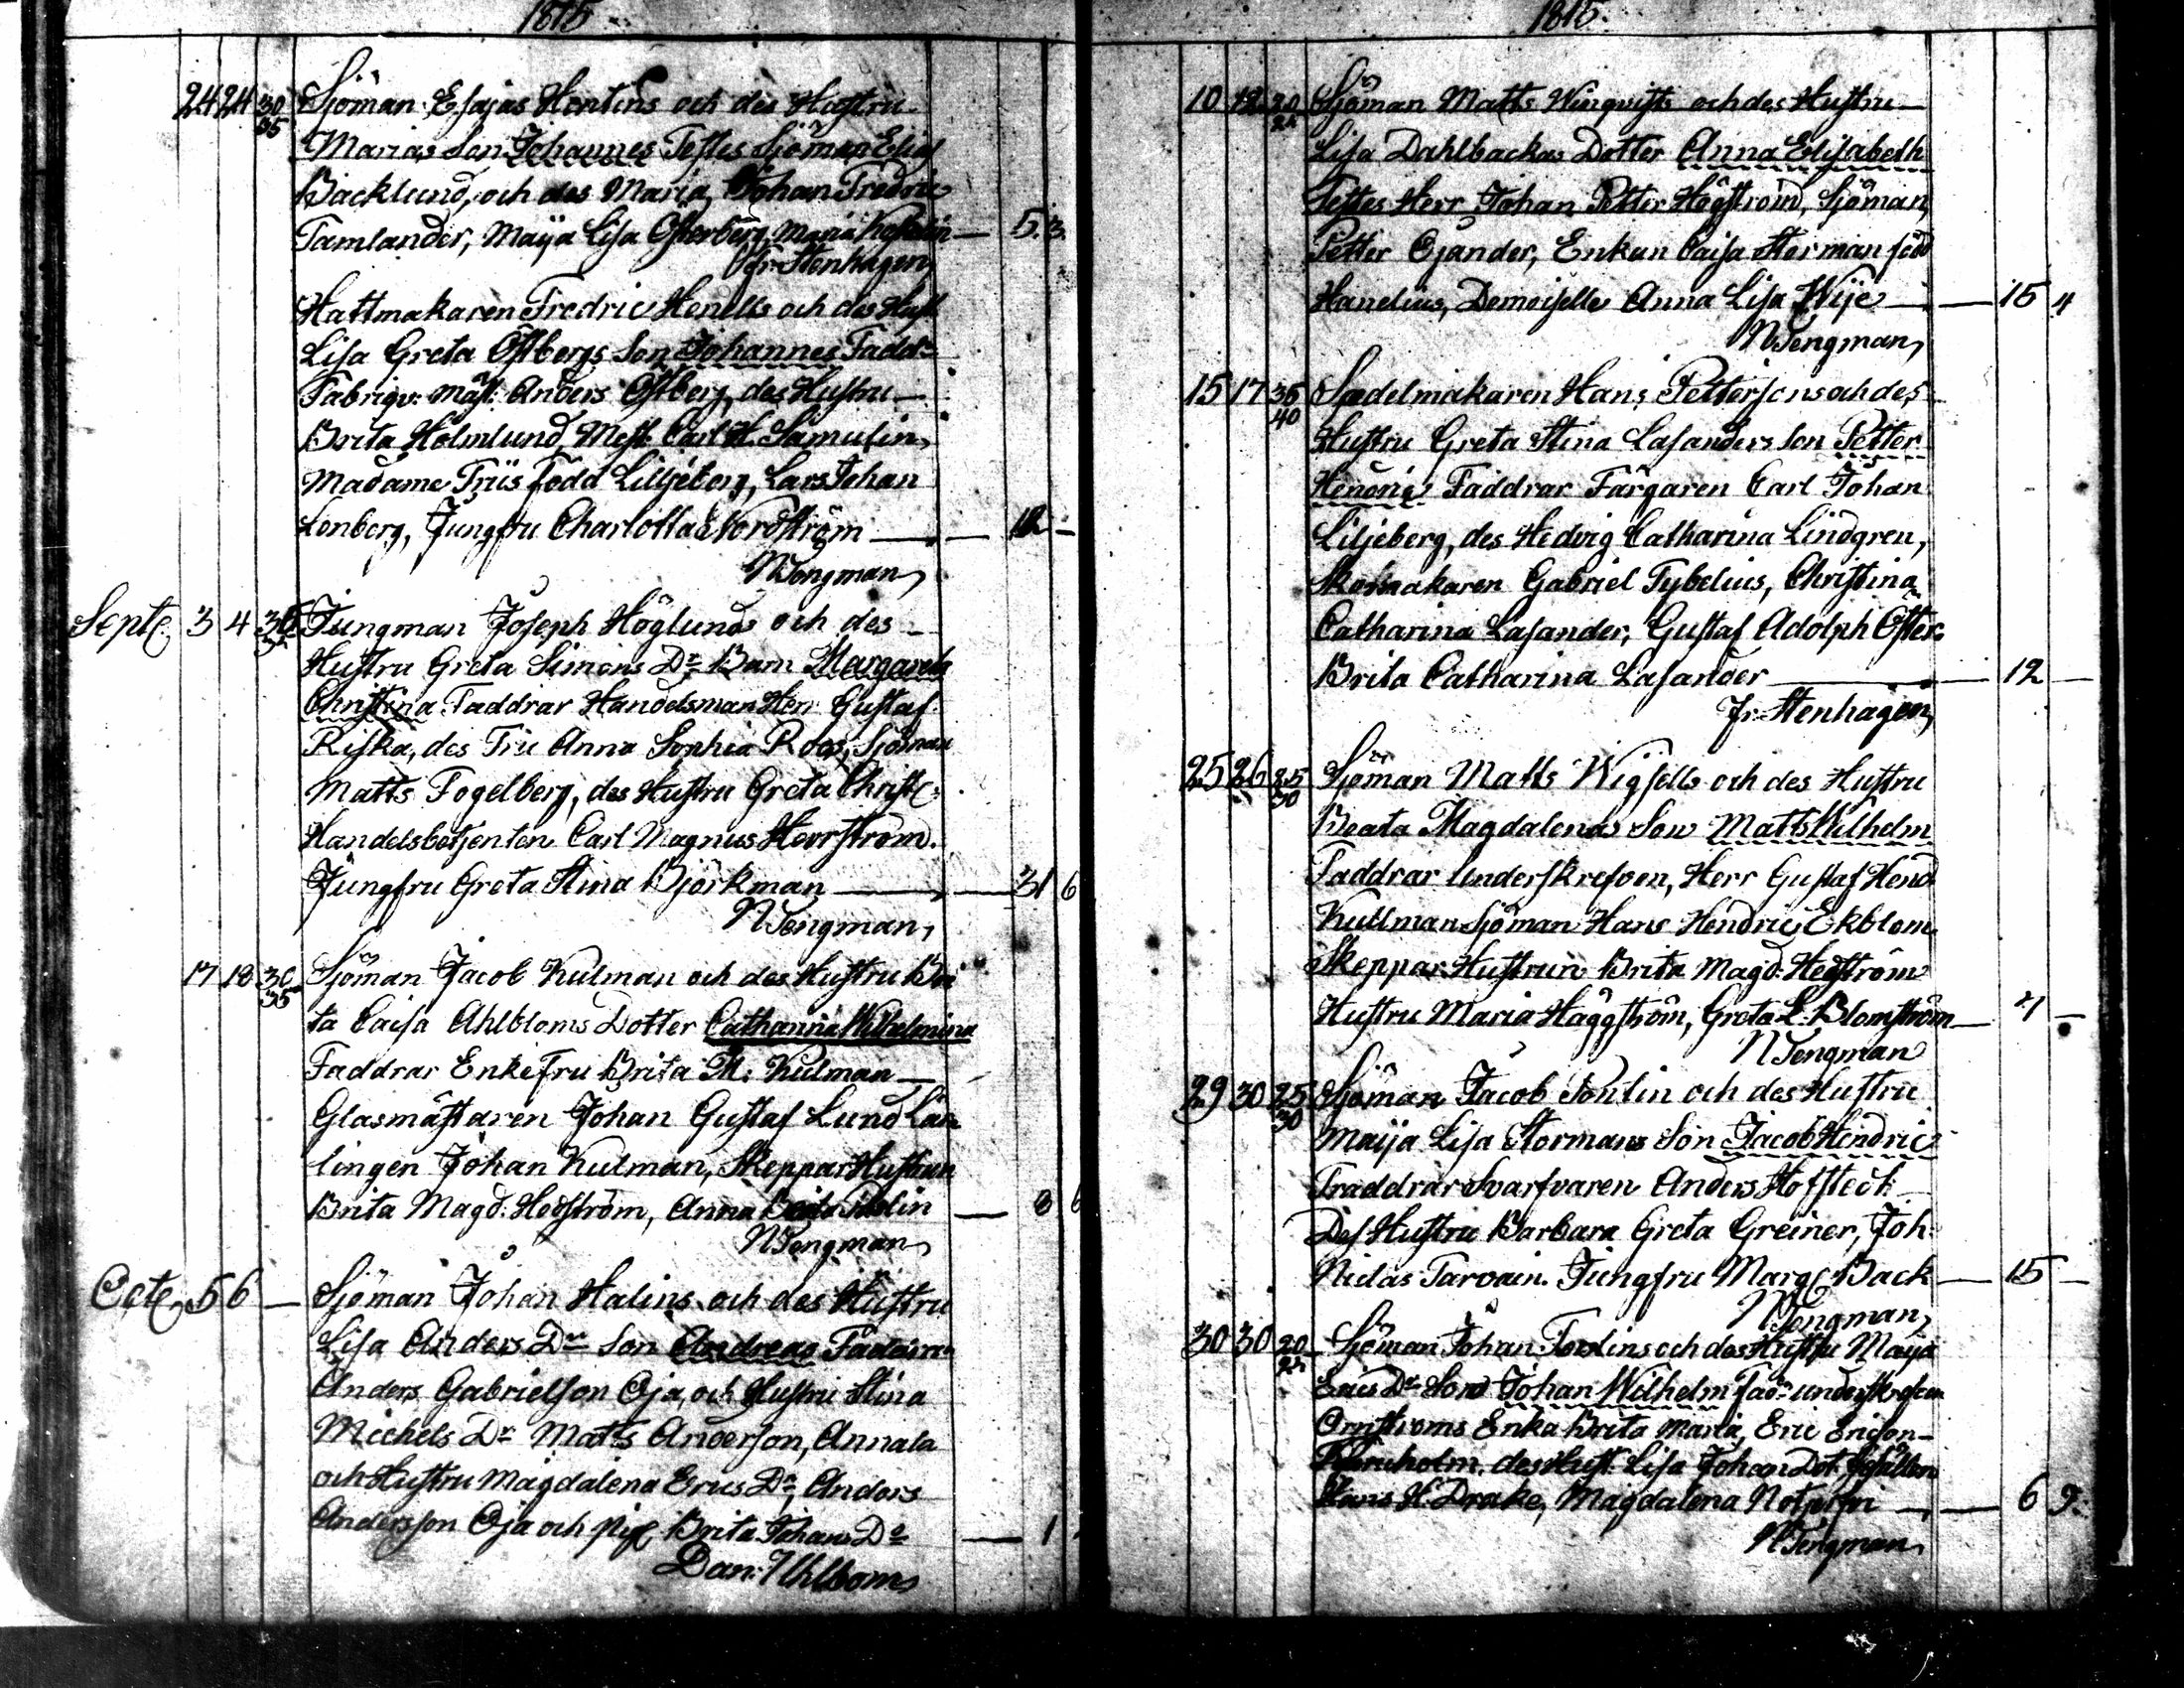 1815
24 24 30 35 Sjöman Esajas Hentins och des Hustru
Marias Son Johannes Testes Sjöman Elias
Backlund, och des Maria, Johan Fredric
Tamlander, Maija Lisa Osterberg, Maria — 5. 3.
fr. Stenhagen
Hattmakaren Fredric Henells och des Hust
Lisa Greta Östbergs Son Johannes Fadd:
Fabriqv: mäst: Anders Östberg, des Hustru
Brita Holmlund, Mest. Carl H. Samulin,
Madame Friis född Liljeberg, Lars Johan
Lönberg, Jungfru Charlotta Nordström — 12 —
N Tengman
Septe. 3 4 30 35 Jungman Joseph Höglunds och des
Hustru Greta Simons Dr Barn Margareta
Christina. Faddrar Handelsman Herr Gustaf
Riska, des Fru Anna Sophia Roos, Sjöman
Matts Fogelberg, des Hustru Greta Christ:
Handelsbetjenten Carl Magnus Herrström.
Jungfru Greta Stina Björkman — 31 6
N Tengman,
17 18 30 35 Sjöman Jacob Kulman och des Hustru Bri
ta Caisa Ahlbloms Dotter Catharina Wilhelmina
Faddrar Enkefru Brita M: Kulman
Glasmästaren Johan Gustaf Lund Lär
lingen Johan Kulman, Skeppar Hustrun
Brita Magd: Hedström, Anna — 8 6
N Tengman
Octe. 5 6 — Sjöman Johan Halins och des Hustru
Lisa Anders Dr Son Andreas Faddrar
Anders Gabrielson Oja, och Hustru Stina
Michels Dr Matts Anderson, Annala
och Hustru Magdalena Erics Dr, Anders
Andersson Oja och pig: Brita Johans Dr — 1
Dan: Uhlbom
1815.
10 12 20 25 Sjöman Matts Winqvists och des Hustru
Lisa Dahlbackas Dotter Anna Elisabeth
Testes Herr Johan Petter Högström, Sjöman,
Petter Ojander, Enkan Caisa Storman född
Hanelius, Demoiselle Anna Lisa Wije — 15 4
N Tengman,
15 17 35 40 Sadelmakaren Hans Pettersons och des
Hustru Greta Stina Lasanders Son Petter
Hendric Faddrar Färgaren Carl Johan
Liljeberg, des Hedvig Catharina Lindgren,
Skomakaren Gabriel Tybelius, Christina
Catharina Lasander, Gustaf Adolph Öster:
Brita Catharina Lasander — 12 —
fr. Stenhagen,
25 26 25 30 Sjöman Matts Wigsells och des Hustru
Beata Magdalenas Son Matts Wilhelm
Faddrar Underskrefven, Herr Gustaf Hend
Kullman Sjöman Hans Hendric Ekblom
Skeppar Hustrun Brita Magd: Hedström
Hustru Maria Häggström, Greta L: Blomström — 4 —
N Tengman
29 30 25 30 Sjöman Jacob Pontin och des Hustru
Maija Lisa Stormans Son Jacob Hendric
Fraddrar Svarfvaren Anders Hofstedt
Des Hustru Barbara Greta Greiner, Joh:
Niclas Tarvain. Jungfru Marg: Back — 15 —
N Tengman,
30 30 20 25 Sjöman Johan Fordins och des Hustru Maija
Erics Dr Son Johan Wilhelm Fad: underskrefven
Enka Brita Maria, Eric Ericson
des Hust. Lisa Johans Dot.
Hans H. Drake, Magdalena — 6 9.
N Tengman